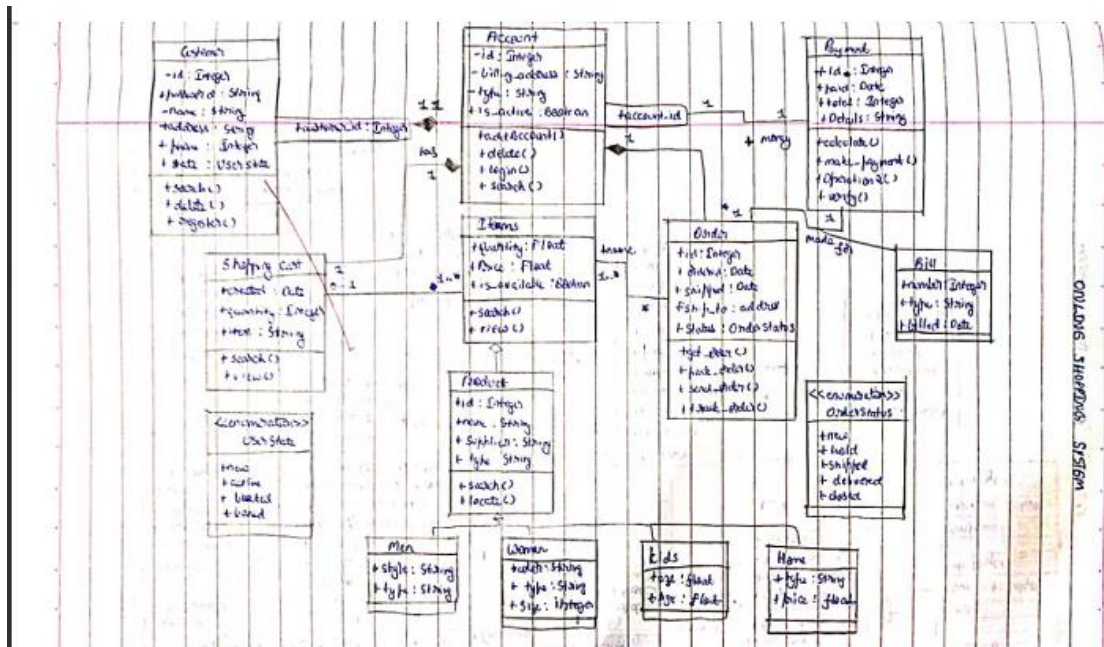 Customer
-id : Integer
+password : String
-name : String
+address : String
+ phone : Integer
+ state : User State
+search()
+ delete()
+ register()
+customer_id: Integer
1 1
has
1
Account
-id : Integer
- billing_address : String
- type : String
+ is_active : Boolean
+add Account()
+ delete()
+ login()
+ search()
+account_id
1
1
+ money
1
Payment
+id : Integer
+ paid : Date
+ total : Integer
+ Details : String
+calculate()
+ make_payment()
+ Operation2()
+ verify()
1
made for
Shopping Cart
+created : Date
+quantity : Integer
+item : String
+ search()
+ view()
1..*
Items
+quantity : Float
+ Price : Float
+ is_available : Boolean
+ search()
+ view()
+name
1..*
*
* 1
Order
+id: Integer
+ ordered : Date
+ shipped : Date
+ ship_to : address
+ status : OrderStatus
+get_order()
+ pack_order()
+ send_order()
+ track_order()
Bill
+number: Integer
+type : String
+billed : Date
Product
+id : Integer
+name : String
+ Supplier : String
+ type : String
+ search()
+ locate()
<<enumeration>>
User State
+new
+ active
+ blocked
+ banned
<<enumeration>>
OrderStatus
+new
+ hold
+shipped
+ delivered
+closed
Men
+ style : String
+ type : String
Women
+color : String
+ type : String
+ Size : Integer
Kids
+age : float
Home
+ type : String
+ price : float
ONLINE SHOPPING SYSTEM